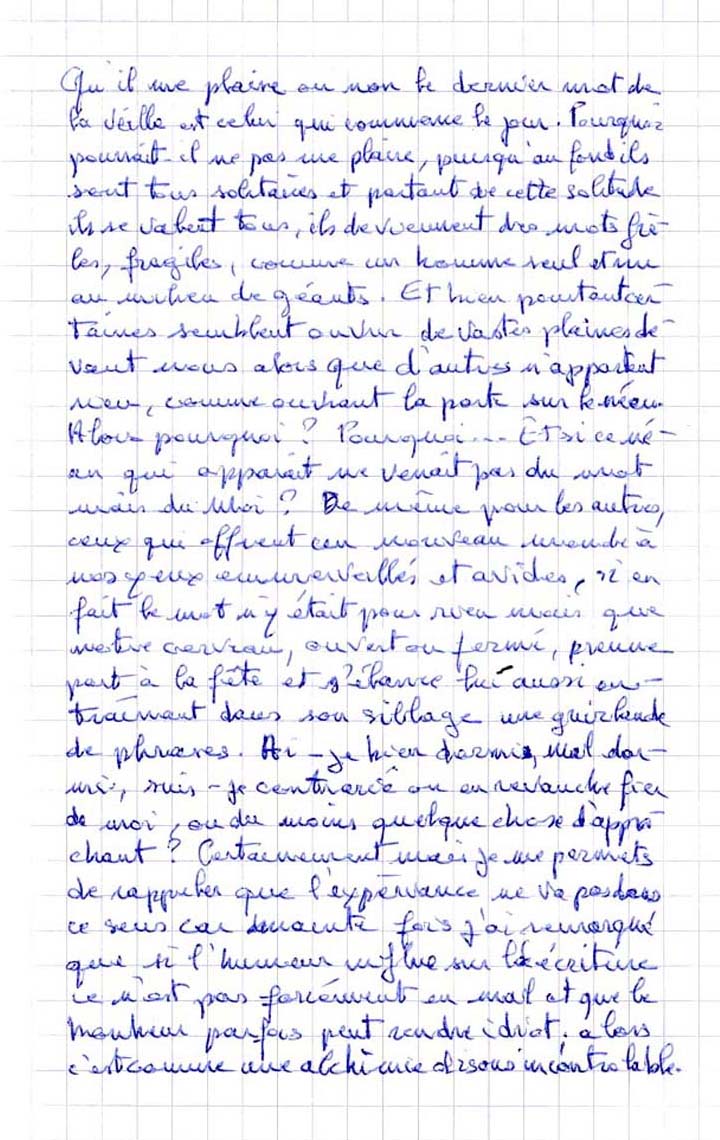 Qu'il me plaise ou non le dernier mot de
la veille est celui qui commence le jour. Pourquoi
pourrait-il ne pas me plaire, puisqu'au fond ils
sont tous solitaires et partant de cette solitude
ils se valent tous, ils deviennent des mots frê-
les, fragiles, comme un homme seul et nu
au milieu de géants. Et bien pourtant cer-
taines semblent ouvrir de vastes plaines de-
vant nous alors que d'autres n'apportent
rien, comme ouvrant la porte sur le néan.
Alors pourquoi ? Pourquoi... Et si ce né-
an qui apparait ne venait pas du mot
mais du Moi ? De même pour les autres,
ceux qui offrent un nouveau monde à
nos yeux emmerveillés et avides, si en
fait le mot n'y était pour rien mais que
notre cerveau, ouvert ou fermé, prenne
part à la fête et s'élance lui aussi en-
trainant dans son sillage une guirlande
de phrases. Ai-je bien dormis, mal dor-
mi, suis-je contrarié ou en revanche fier
de moi, ou du moins quelque chose d'appro-
chant ? Certainement mais je me permets
de rappeler que l'expérience ne va pas dans
ce sens car mainte fois j'ai remarqué
que si l'humeur influe sur l'écriture
ce n'est pas forcément en mal et que le
bonheur parfois peut rendre idiot, alors
c'est comme une alchimie disons incontrolable.